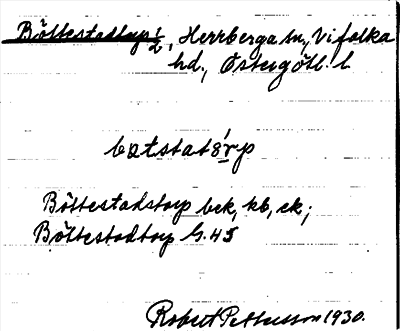 Böttestadtorp 1/2, Herrberga sn, Vifolka
hd., Östergötl. l.
bɒtstatörp
Böttestadstorp bek, kb, ek;
Böttestadtorp G.45
Robert Pettersson 1930.